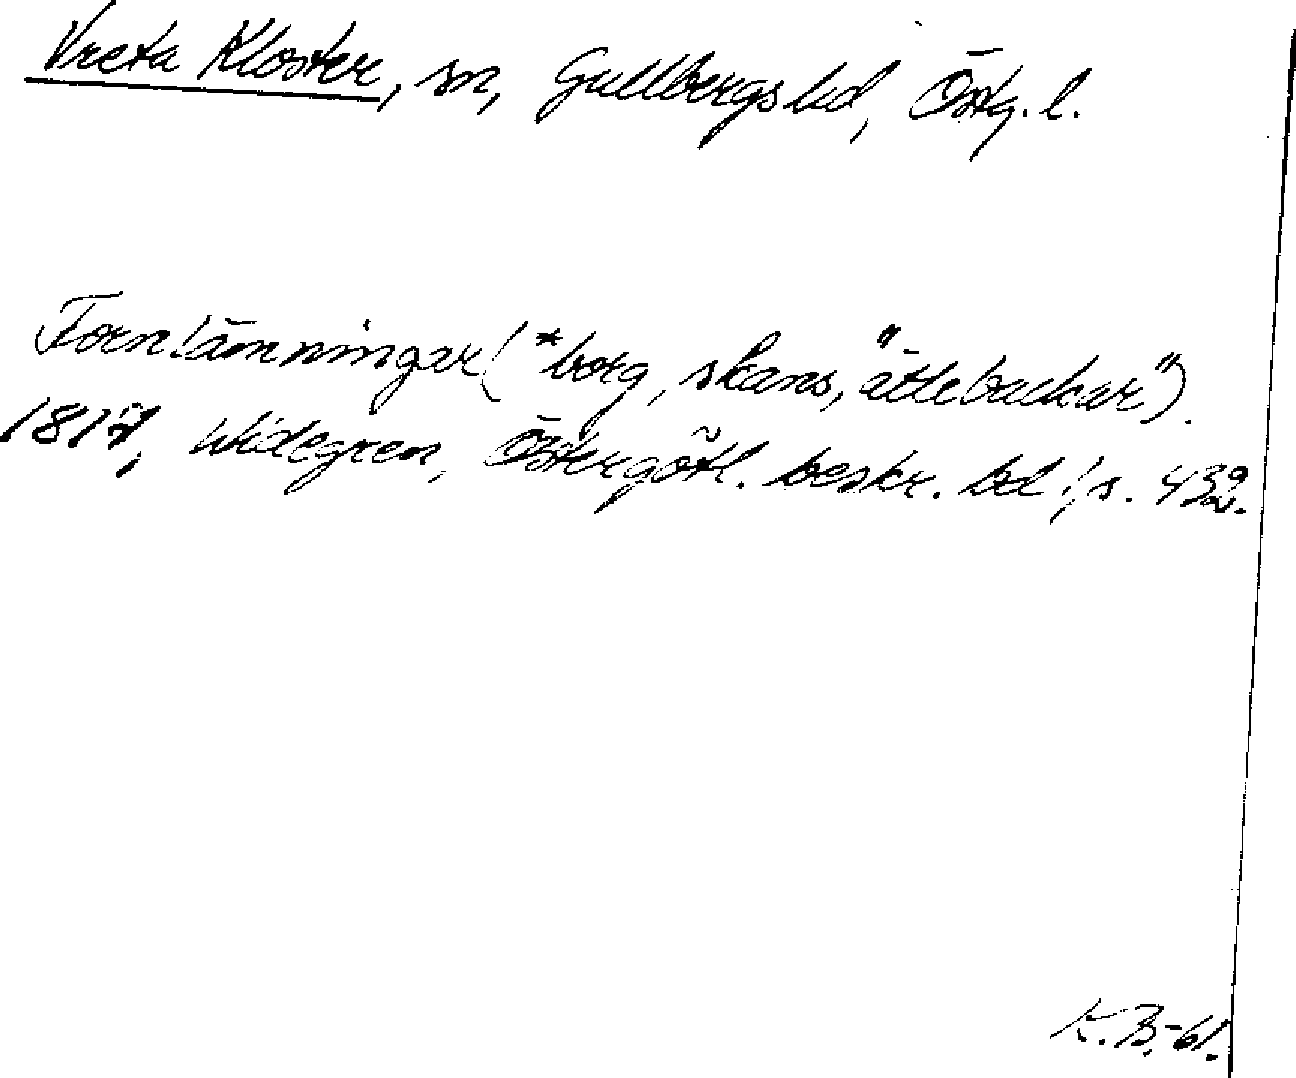 Vreta Kloster, sn, Gullbergs hd, Östg. l.
Fornlämningar (*borg, skans, "ättebackar").
1817, Widegren, Östergötl. beskr. bd 1, s. 432.
K. B. -61.